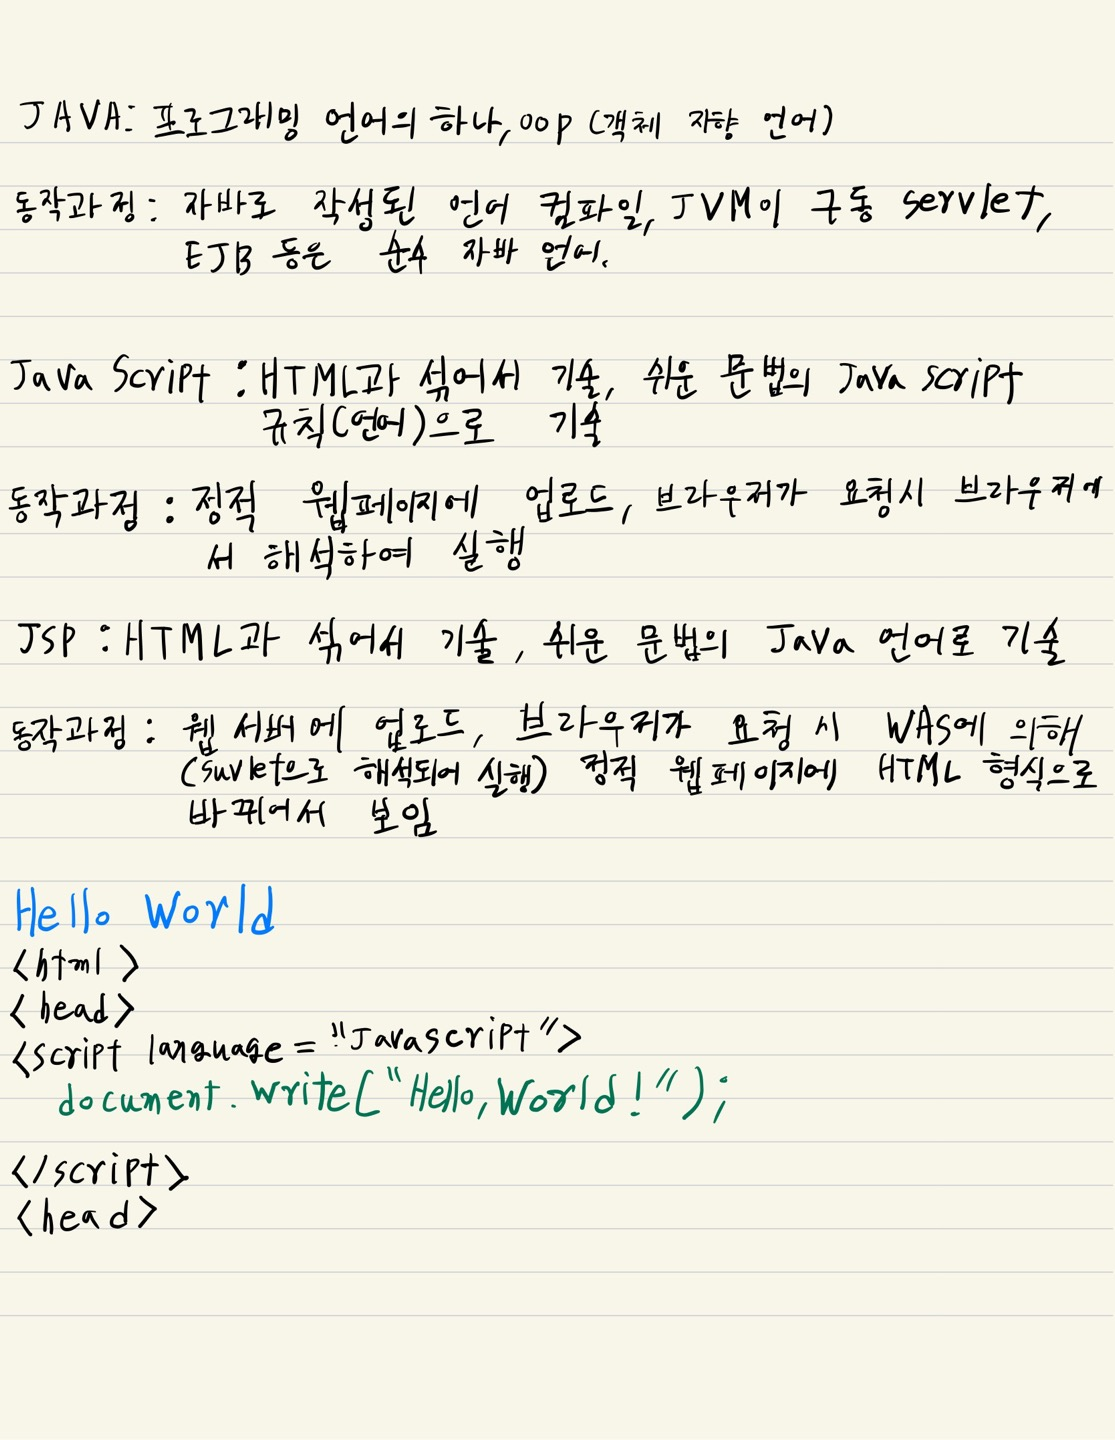 JAVA: 프로그래밍 언어의 하나, oop (객체 지향 언어)
동작과정: 자바로 작성된 언어 컴파일, JVM이 구동 servlet,
EJB 등은 순수 자바 언어.
Java Script : HTML과 섞어서 기술, 쉬운 문법의 Java script
규칙(언어)으로 기술
동작과정 : 정적 웹페이지에 업로드, 브라우저가 요청시 브라우저에
서 해석하여 실행
JSP : HTML과 섞어서 기술, 쉬운 문법의 Java 언어로 기술
동작과정 : 웹 서버에 업로드, 브라우저가 요청 시 WAS에 의해
(suvlet으로 해석되어 실행) 정적 웹페이지에 HTML 형식으로
바뀌어서 보임
Hello World
<html>
<head>
<script language = "Javascript">
document.write("Hello, World!");
</script>
<head>